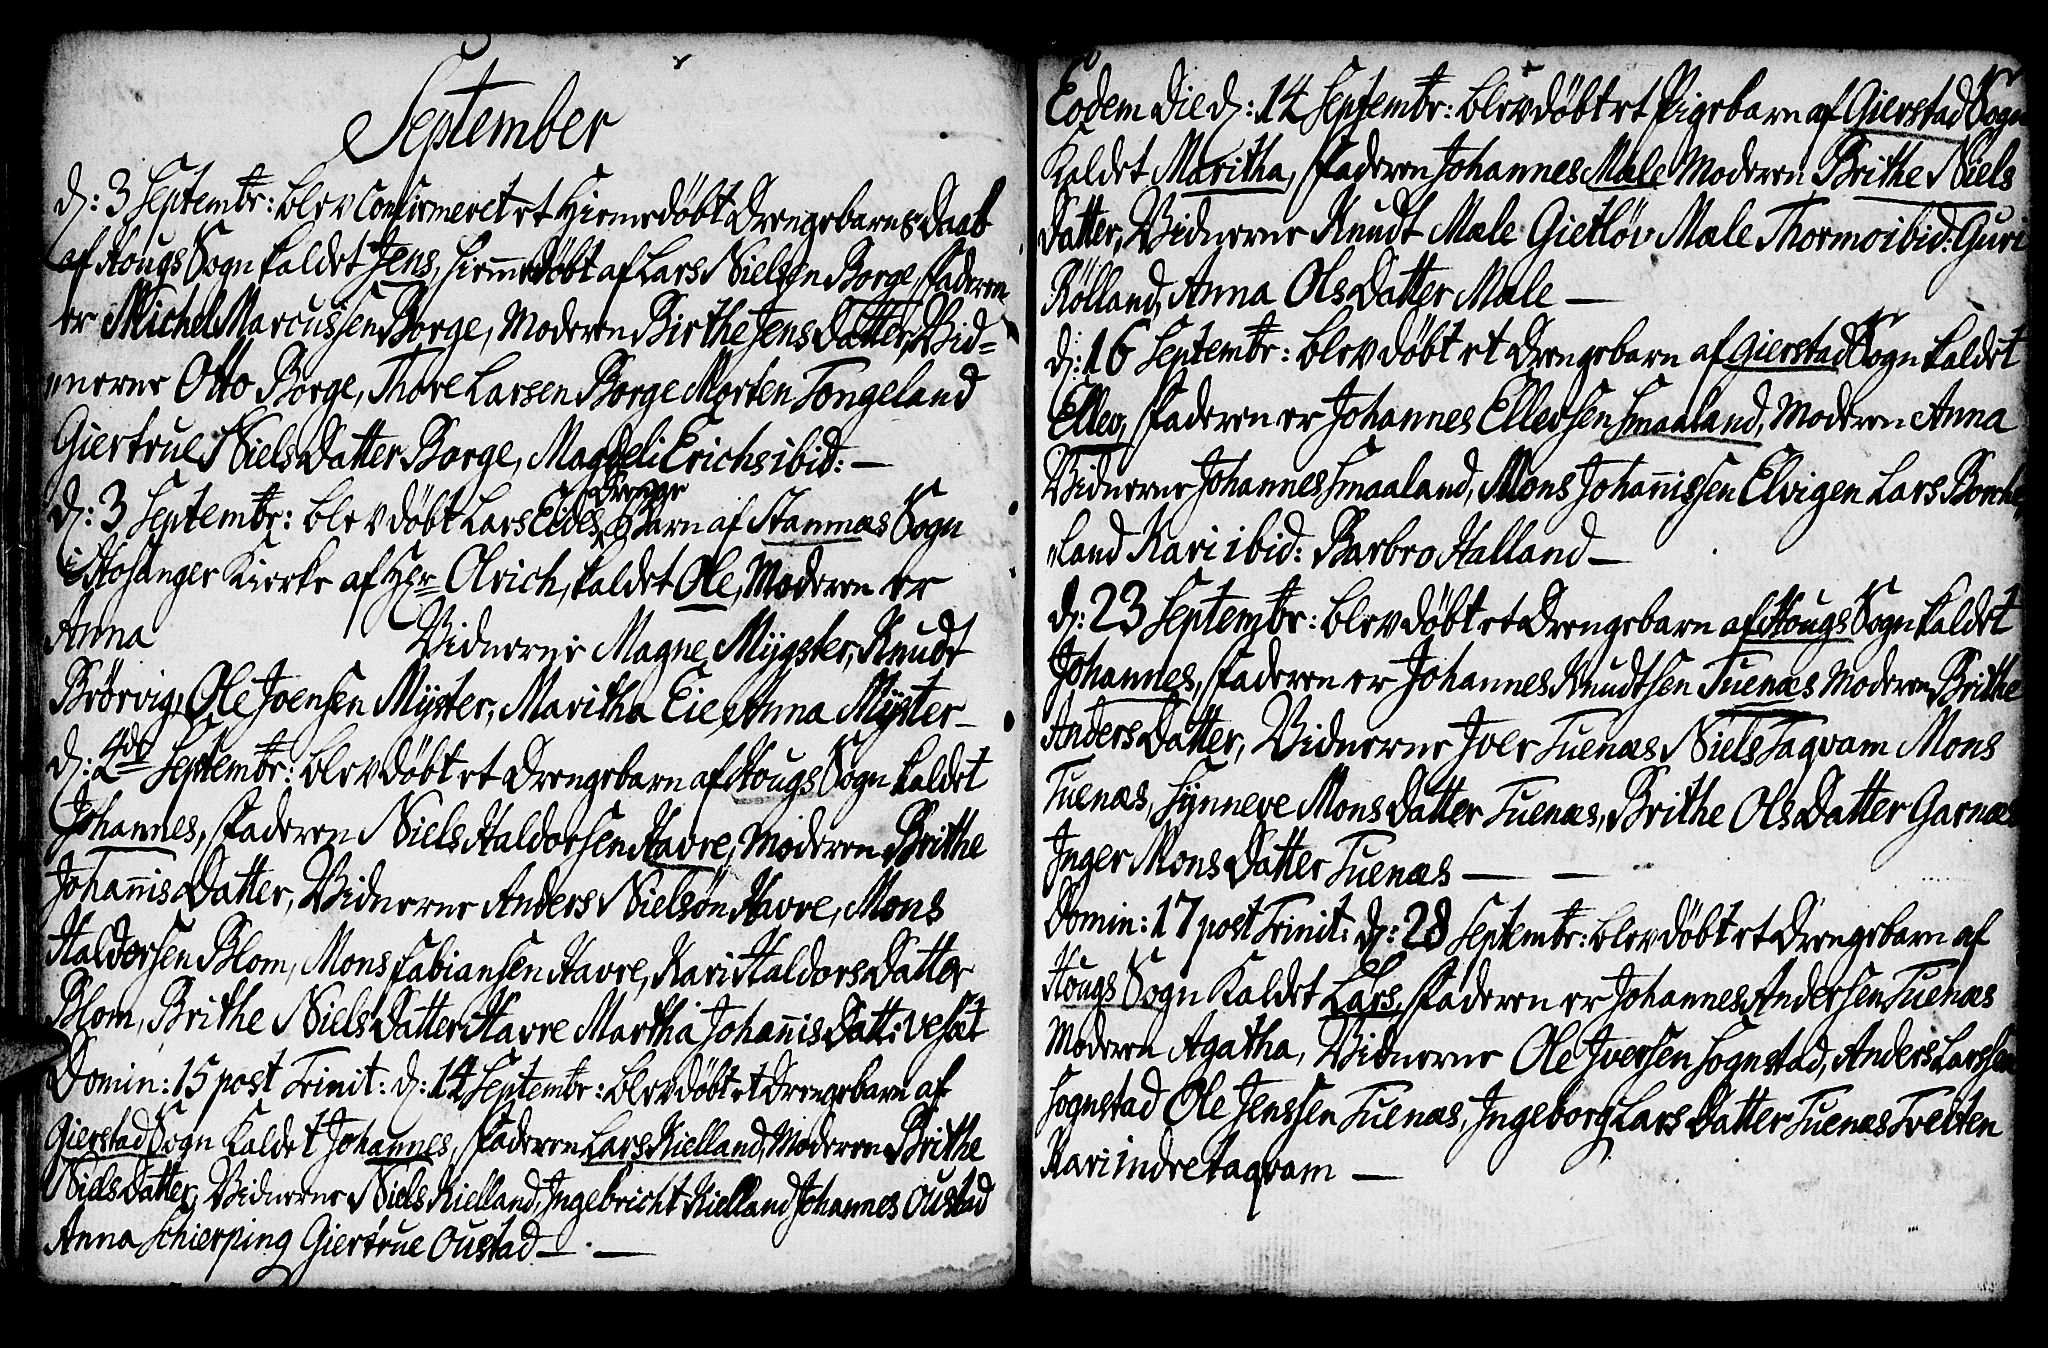 September
d: 3 Septembr: blev Confirmeret et Hiemedøbt Drengebarns Daab
af Hougs Sogn kaldet Jens, hiemedøbt af Lars Nielsen Borge, Faderen
er Michel Marcussen Borge, Moderen Birthe Jens Datter, Vid=
nerne Otto Borge, Thore Larsen Borge Morten Tongeland
Giertrue Niels Datter Borge, Magdeli Erichs ibid: —
d: 3 Septembr: blev døbt Lars Eides Drenge Barn af Stamnæs Sogn
i Hosanger Kierke af Hr Olrich, kaldet Ole, Moderen er
Anna Vidnerne Magne Mÿgster, Knudt
Brørvig, Ole Joensen Mÿster, Maritha Eie, Anna Mÿster —
d: 4de Septembr: blev døbt et Drengebarn af Hougs Sogn kaldet
Johannes, Faderen Niels Haldorsen Havre, Moderen Brithe
Johannis Datter, Vidnerne Anders Nielsøn Havre, Mons
Haldorsen Blom, Mons Fabiansen Havre, Kari Haldors Datter
Blom, Brithe Niels Datter Havre Martha Johannis Datt: Vesæt
Domin: 15 post Trinit: d: 14 Septembr: blev døbt et Drengebarn af
Gierstad Sogn kaldet Johannes, Faderen Lars Kielland, Moderen Brithe
Niels Datter, Vidnerne Niels Kielland, Ingebricht Kielland Johannes Oustad
Anna Schierping Giertrue Oustad — . —
Eodem Die d: 14 Septembr: blev døbt et Pigebarn af Gierstad Sogn
Kaldet Maritha, Faderen Johannes Mæle Moderen Brithe Niels
Datter, Vidnerne Knudt Mæle Gietløv Mæle Thormo ibid: Guri
Rølland, Anna Ols Datter Mæle —
d: 16 Septembr: blev døbt et Drengebarn af Gierstad Sogn kaldet
Ellev, Faderen er Johannes Ellevsen Smaaland, Moderen Anna
Vidnerne Johannes Smaaland, Mons Johannissen Elvigen Lars Borche
land Kari ibid: Barbro Halland —
d: 23 Septembr: blev døbt et Drengebarn af Hougs Sogn kaldet
Johannes, Faderen er Johannes Knudtsen Tuenæs Moderen Brithe
Anders Datter, Vidnerne Iver Tuenæs Niels Taqvam Mons
Tuenæs, Sÿnneve Mons Datter Tuenæs, Brithe Ols Datter Garnæs
Inger Mons Datter Tuenæs — —
Domin: 17 post Trinit: d: 28 Septembr: blev døbt et Drengebarn af
Hougs Sogn Kaldet Lars, Faderen er Johannes Andersen Tuenæs
Moderen Agatha, Vidnerne Ole Iversen Sognstad, Anders Larssen
Sognstad Ole Jenssen Tuenæs, Ingeborg Lars Datter Tuenæs Tvelten
Kari indre taqvam —